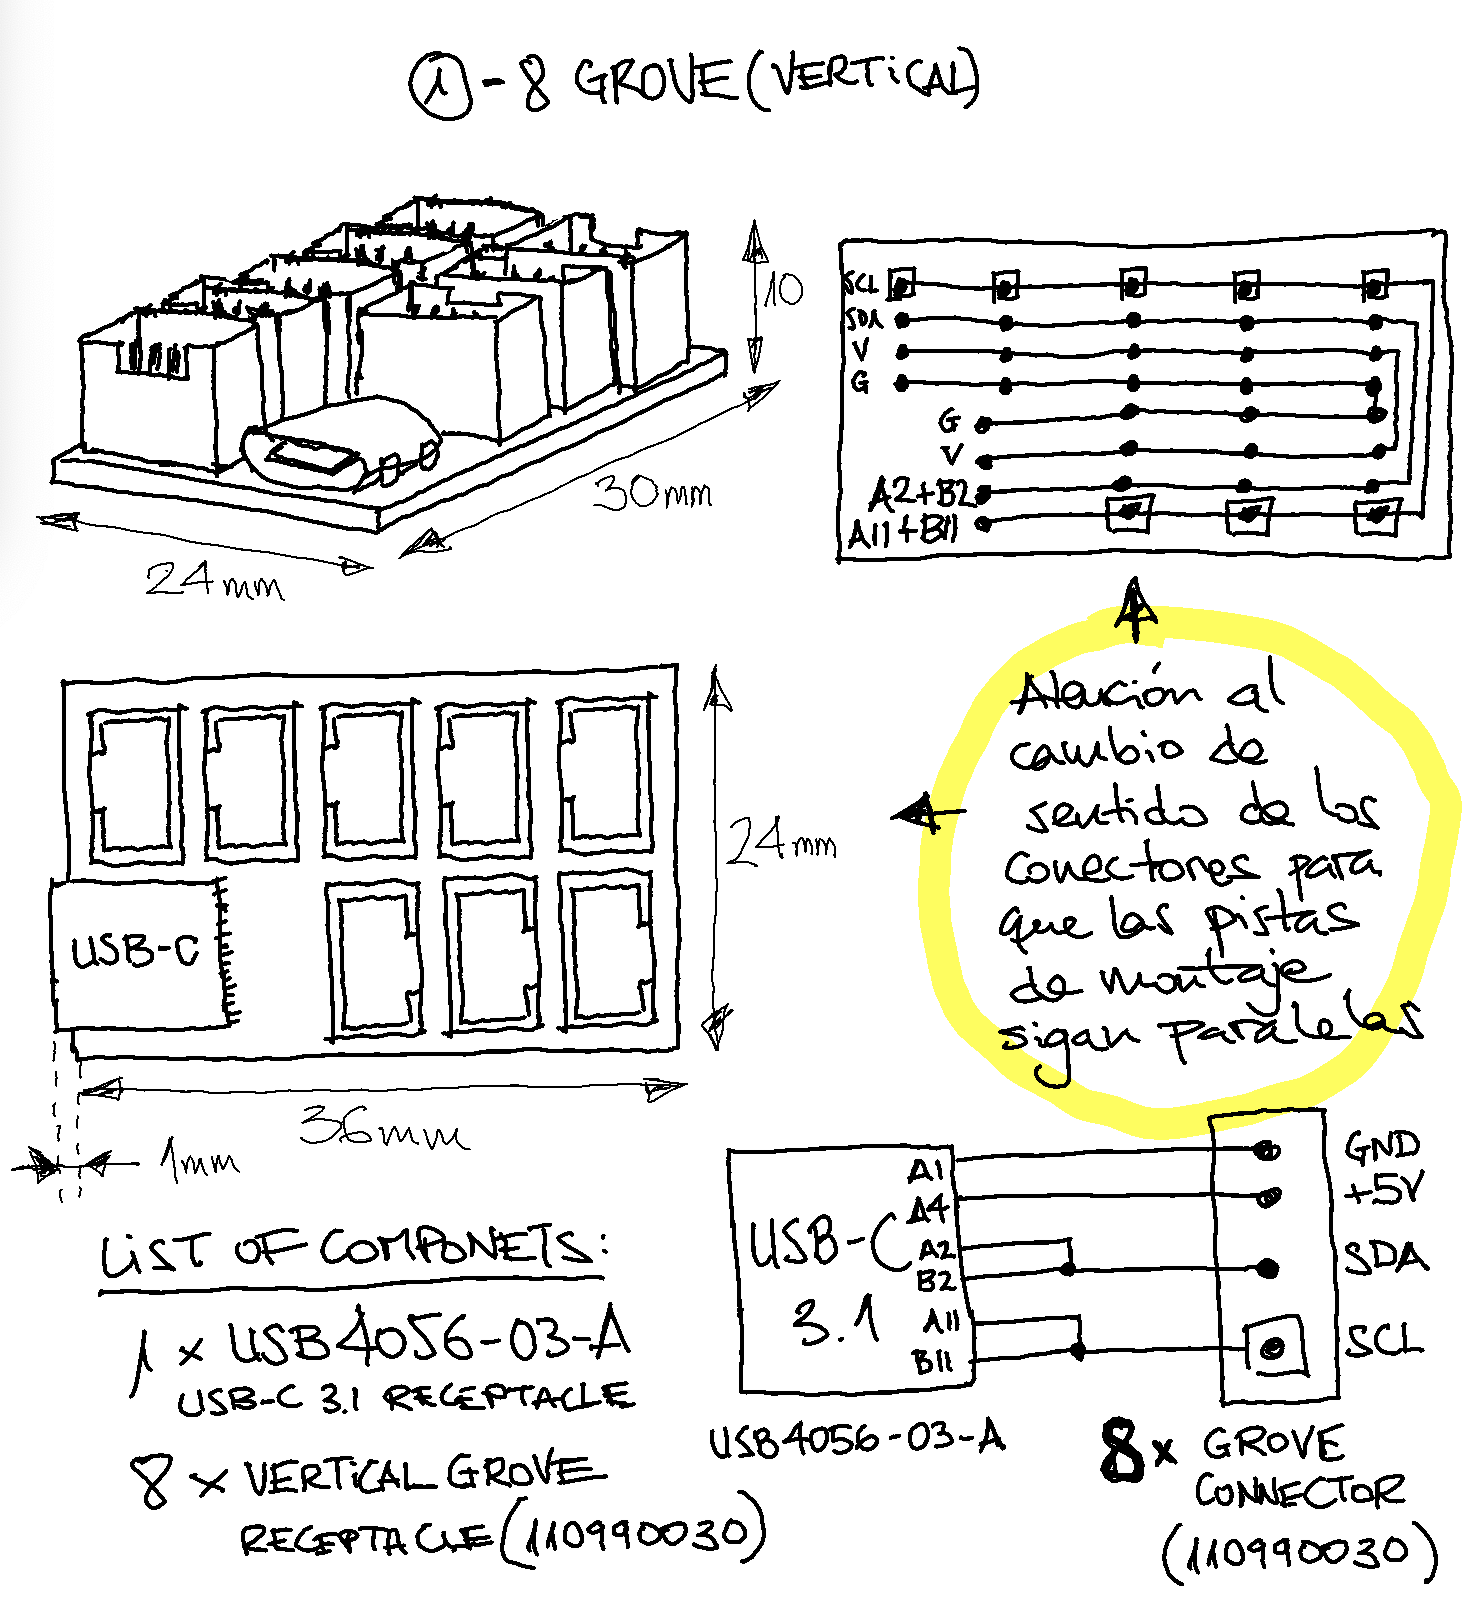 1 - 8 GROVE (VERTICAL)
10
30mm
24mm
SCL
SDA
V
G
G
V
A2+B2
A11+B11
USB-C
24mm
36mm
1mm
Atención al
cambio de
sentido de los
conectores para
que las pistas
de montaje
sigan paralelas
LIST OF COMPONETS:
1 x USB4056-03-A
USB-C 3.1 RECEPTACLE
8 x VERTICAL GROVE
RECEPTACLE (110990030)
USB-C
3.1
A1
A4
A2
B2
A11
B11
GND
+5V
SDA
SCL
USB4056-03-A
8 x GROVE
CONNECTOR
(110990030)